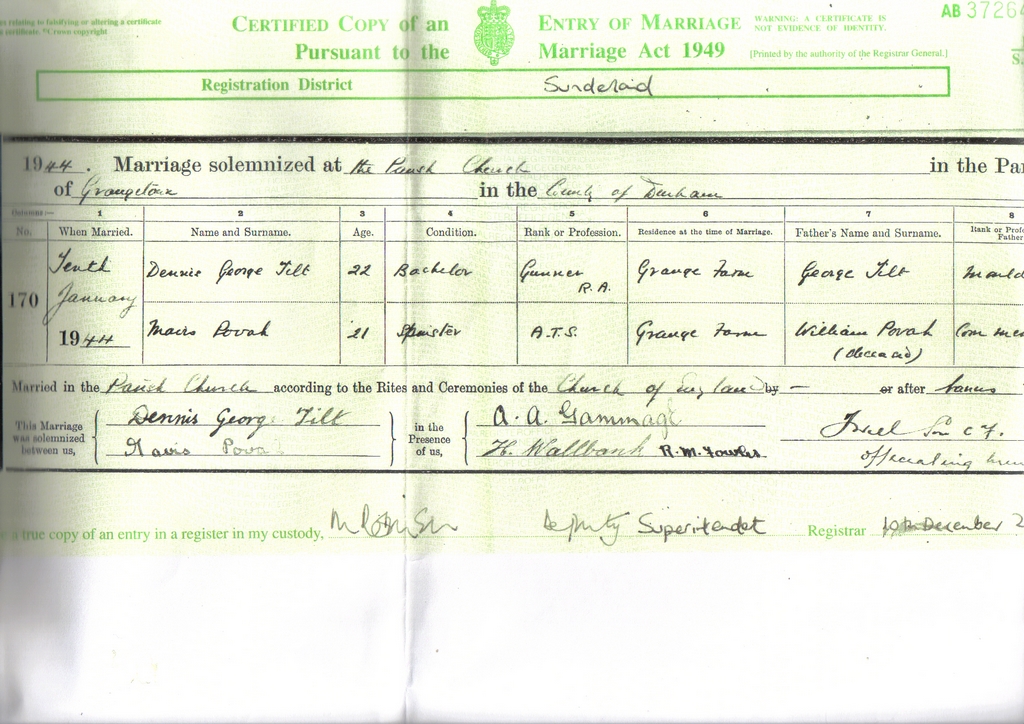 relating to falsifying or altering a certificate
certificate. ©Crown copyright
CERTIFIED COPY of an ENTRY OF MARRIAGE
Pursuant to the Marriage Act 1949
WARNING: A CERTIFICATE IS
NOT EVIDENCE OF IDENTITY.
[Printed by the authority of the Registrar General.]
AB 3726
Registration District Sunderland
1944. Marriage solemnized at the Parish Church in the Par
of Grangetown in the County of Durham
Columns:— 1 2 3 4 5 6 7 8
No. When Married. Name and Surname. Age. Condition. Rank or Profession. Residence at the time of Marriage. Father's Name and Surname. Rank or Profe
Father
170 Tenth January 1944
Dennis George Tilt 22 Bachelor Gunner R.A. Grange Farm George Tilt Mould
Mavis Povah 21 Spinster A.T.S. Grange Farm William Povah (deceased)
Married in the Parish Church according to the Rites and Ceremonies of the Church of England by — or after banns
This Marriage was solemnized between us,
Dennis George Tilt
Mavis Pova
in the Presence of us,
A. A. Gammage
H. Wallbank R.M. Fowles
C.F.
officiating
a true copy of an entry in a register in my custody, Deputy Superintendet Registrar 10th December 2